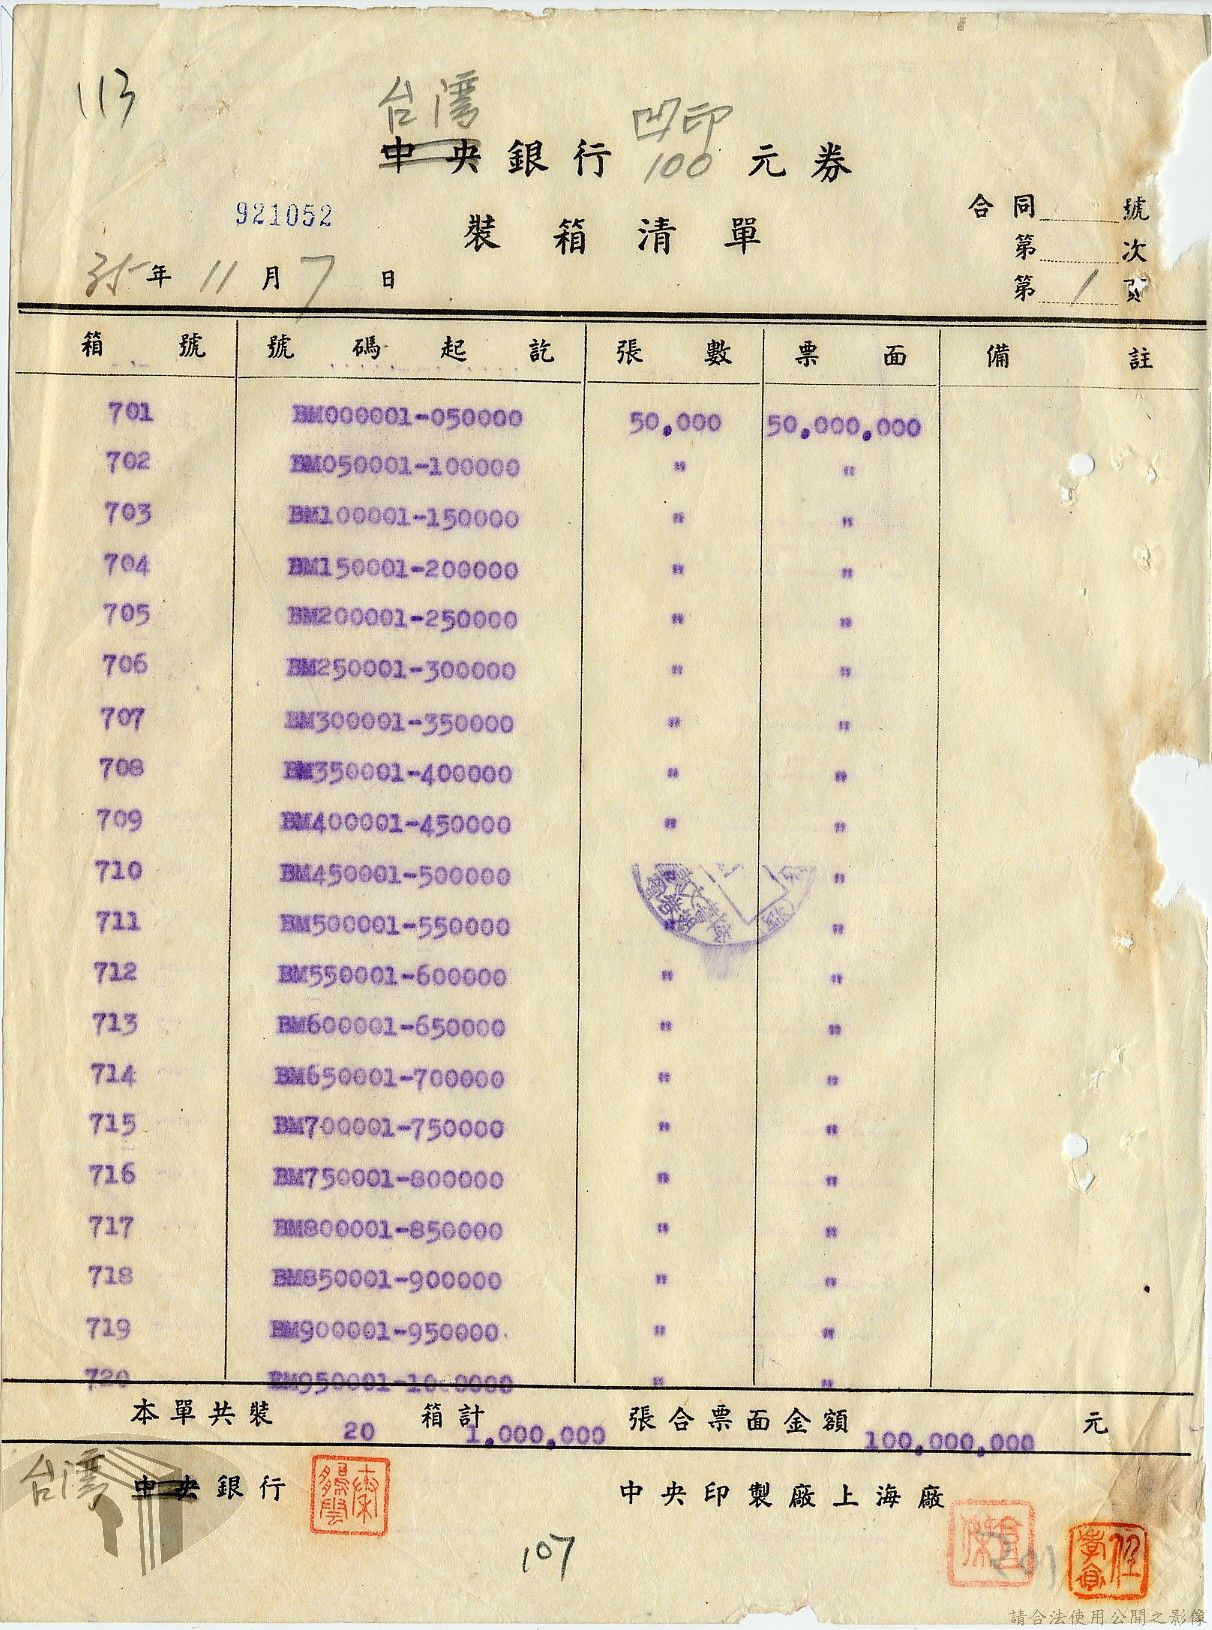 113
台灣 凹印
中央銀行 100 元券
921052
裝箱清單
合同 號
第 次
第 1 頁
35年 11月 7日
箱號 號碼起訖 張數 票面 備註
701 BM000001-050000 50,000 50,000,000
702 BM050001-100000 " "
703 BM100001-150000 " "
704 BM150001-200000 " "
705 BM200001-250000 " "
706 BM250001-300000 " "
707 BM300001-350000 " "
708 BM350001-400000 " "
709 BM400001-450000 " "
710 BM450001-500000 " "
711 BM500001-550000 " "
712 BM550001-600000 " "
713 BM600001-650000 " "
714 BM650001-700000 " "
715 BM700001-750000 " "
716 BM750001-800000 " "
717 BM800001-850000 " "
718 BM850001-900000 " "
719 BM900001-950000 " "
720 BM950001-1000000 " "
本單共裝 20 箱計 1,000,000 張合票面金額 100,000,000 元
台灣 中央銀行 中央印製廠上海廠
107
請合法使用公開之影像